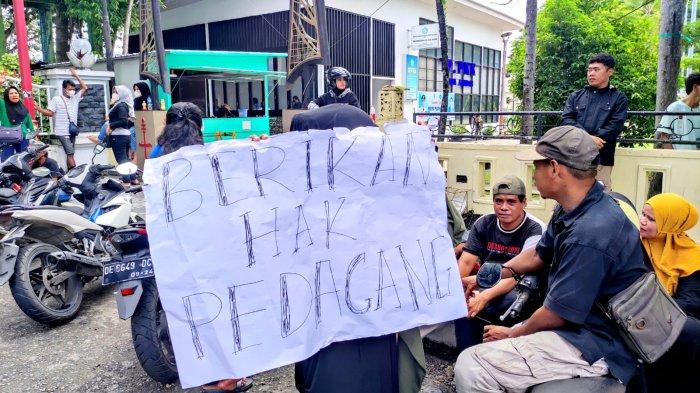 BERIKAN
HAK
PEDAGANG
DE 6649 DC
09·24